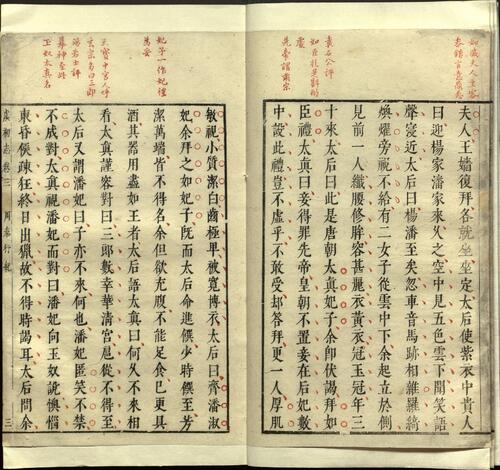 袁石公評
如臣拜是斟酌
處
先帝謂肅宗
夫人王嬙復拜各就坐坐定太后使紫衣中貴人
曰迎楊家潘家來久之空中見五色雲下聞笑語
聲寖近太后曰楊潘至矣忽車音馬跡相雜羅綺
煥燿旁視不給有二女子從雲中下余起立於側
見前一人纖腰修眸容甚麗衣黃衣冠玉冠年三
十來太后曰此是唐朝太真妃子余即伏謁拜如
臣禮太真曰妾得罪先帝皇朝不置妾在后妃數
中設此禮豈不虛乎不敢受却答拜更一人厚肌
妃子一作妃禮
天寶中宮人呼
玄宗多曰三郎
湯若士評
摹神至此
玉奴太真名
敏視小質潔白齒極卑被寬博衣太后曰齊潘淑
妃余拜之如妃子既而太后命進饌少時饌至芳
潔萬端皆不得名余但欲充腹不能足食已更具
酒其器用盡如王者太后語太真曰何久不來相
看太真謹容對曰三郎數幸華清宮扈從不得至
太后又謂潘妃曰子亦不來何也潘妃匿笑不禁
不成對太真視潘妃而對曰潘妃向玉奴說懊惱
東昏侯疎狂終日出獵故不得時謁耳太后問余
虞初志卷三 周秦行紀 三